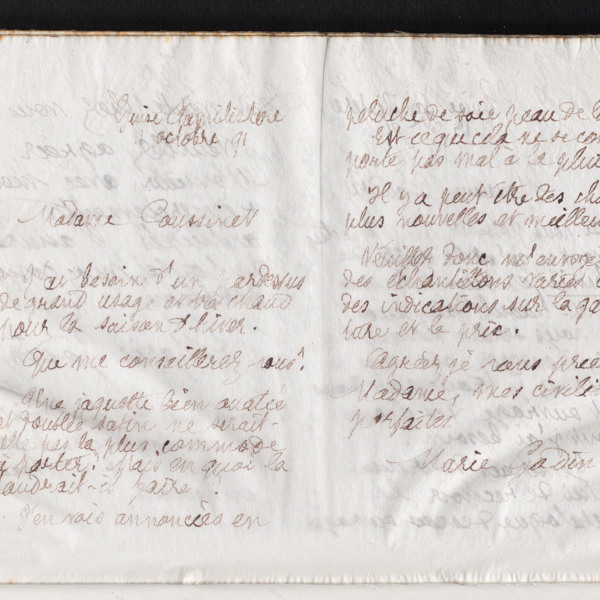 Guise Familistère
octobre 91
Madame Coussinet
J'ai besoin d'un pardessus
de grand usage et très chaud
pour la saison d'hiver.
Que me conseillerez-vous?
Une jaquette bien ouatée
et doublé satin ne serait-
elle pas la plus commode
à porter? Mais en quoi la
faudrait-il faire?
J'en vois annoncées en
peluche de soie peau de
Est ce que cela ne se com
porte pas mal à la plui
Il y a peut être des cho
plus nouvelles et meilleu
Veuillez donc m'envoye
des échantillons variés
des indications sur la ga
ture et le prix.
Agréez je vous prie
Madame, mes civili
parfaites
Marie Godin